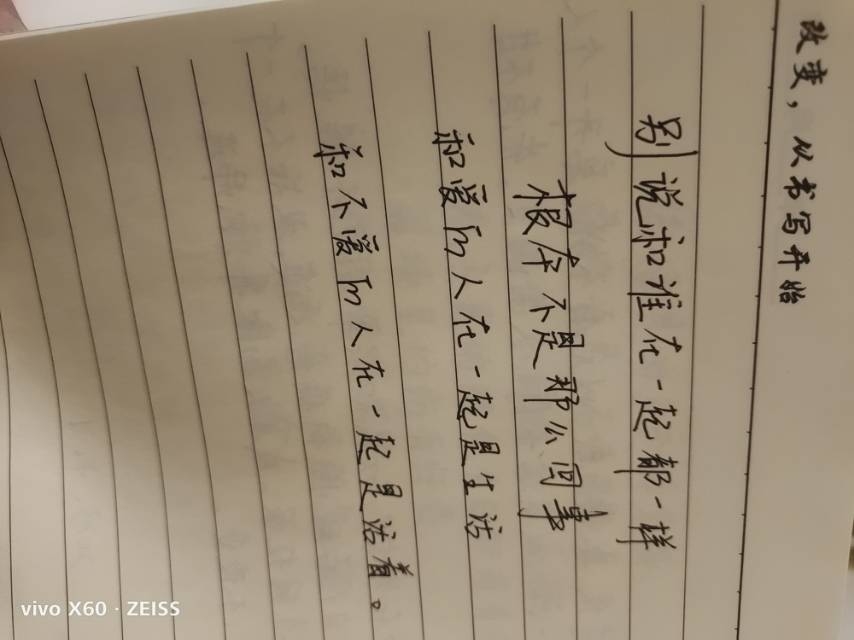 改变，从书写开始
别说和谁在一起都一样
根本不是那么回事
和爱的人在一起是生活
和不爱的人在一起是活着。
vivo X60 · ZEISS